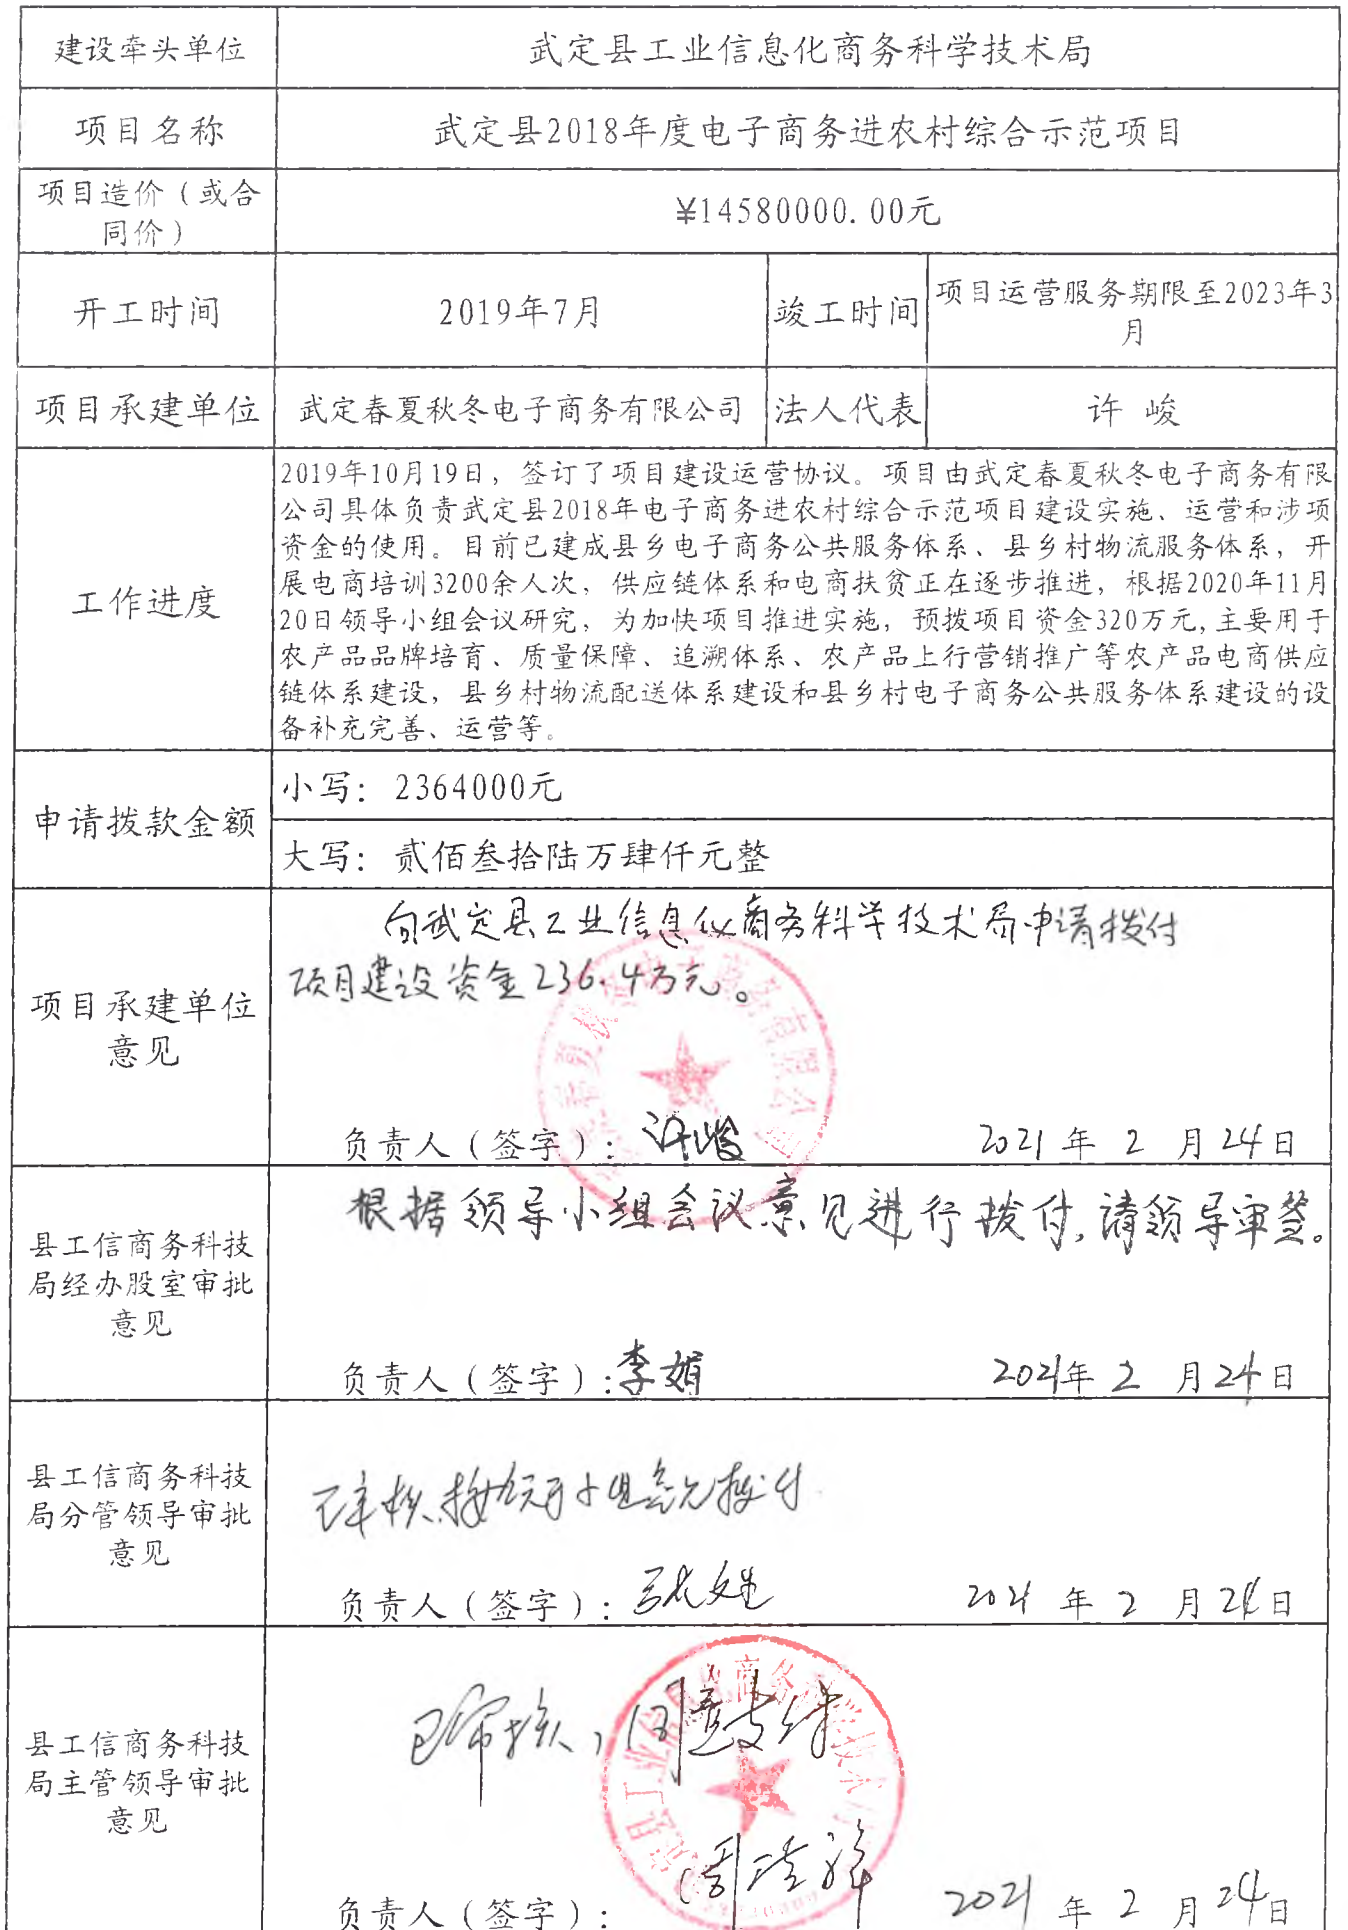 建设牵头单位
武定县工业信息化商务科学技术局
项目名称
武定县2018年度电子商务进农村综合示范项目
项目造价（或合
同价）
¥14580000.00元
开工时间
2019年7月
竣工时间
项目运营服务期限至2023年3
月
项目承建单位
武定春夏秋冬电子商务有限公司
法人代表
许 峻
工作进度
2019年10月19日，签订了项目建设运营协议。项目由武定春夏秋冬电子商务有限
公司具体负责武定县2018年电子商务进农村综合示范项目建设实施、运营和涉项
资金的使用。目前已建成县乡电子商务公共服务体系、县乡村物流服务体系，开
展电商培训3200余人次，供应链体系和电商扶贫正在逐步推进，根据2020年11月
20日领导小组会议研究，为加快项目推进实施，预拨项目资金320万元,主要用于
农产品品牌培育、质量保障、追溯体系、农产品上行营销推广等农产品电商供应
链体系建设，县乡村物流配送体系建设和县乡村电子商务公共服务体系建设的设
备补充完善、运营等。
申请拨款金额
小写：2364000元
大写：贰佰叁拾陆万肆仟元整
项目承建单位
意见
向武定县工业信息化商务科学技术局申请拨付
项目建设资金236.4万元。
负责人（签字）：许峻 2021年2月24日
县工信商务科技
局经办股室审批
意见
根据领导小组会议意见进行拨付,请领导审签。
负责人（签字）:李娟 2021年2月24日
县工信商务科技
局分管领导审批
意见
已审核,按领导小组会议拨付
负责人（签字）: 2021年2月24日
县工信商务科技
局主管领导审批
意见
已审核,同意支付
负责人（签字）: 2021年2月24日